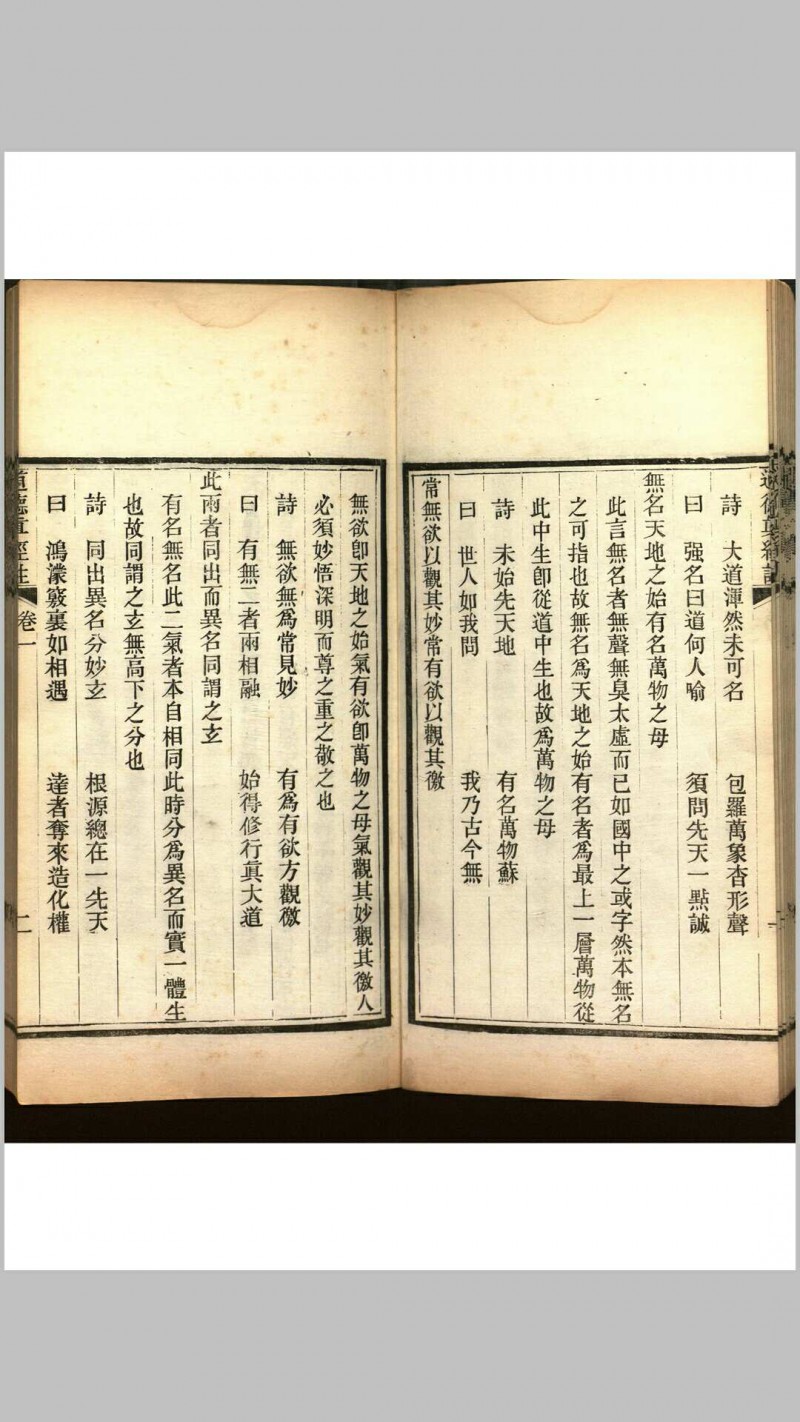 詩　大道渾然未可名　包羅萬象杳形聲
曰　强名曰道何人喻　須問先天一點誠
無名天地之始有名萬物之母
此言無名者無聲無臭太虛而已如國中之或字然本無名
之可指也故無名爲天地之始有名者爲最上一層萬物從
此中生卽從道中生也故爲萬物之母
詩　未始先天地　有名萬物蘇
曰　世人如我問　我乃古今無
常無欲以觀其妙常有欲以觀其徼
無欲卽天地之始氣有欲卽萬物之母氣觀其妙觀其徼人
必須妙悟深明而尊之重之敬之也
詩　無欲無爲常見妙　有爲有欲方觀徼
曰　有無二者兩相融　始得修行眞大道
此兩者同出而異名同謂之玄
有名無名此二氣者本自相同此時分爲異名而實一體生
也故同謂之玄無高下之分也
詩　同出異名分妙玄　根源總在一先天
曰　鴻濛竅裏如相遇　達者奪來造化權
道德眞經註　卷一　二